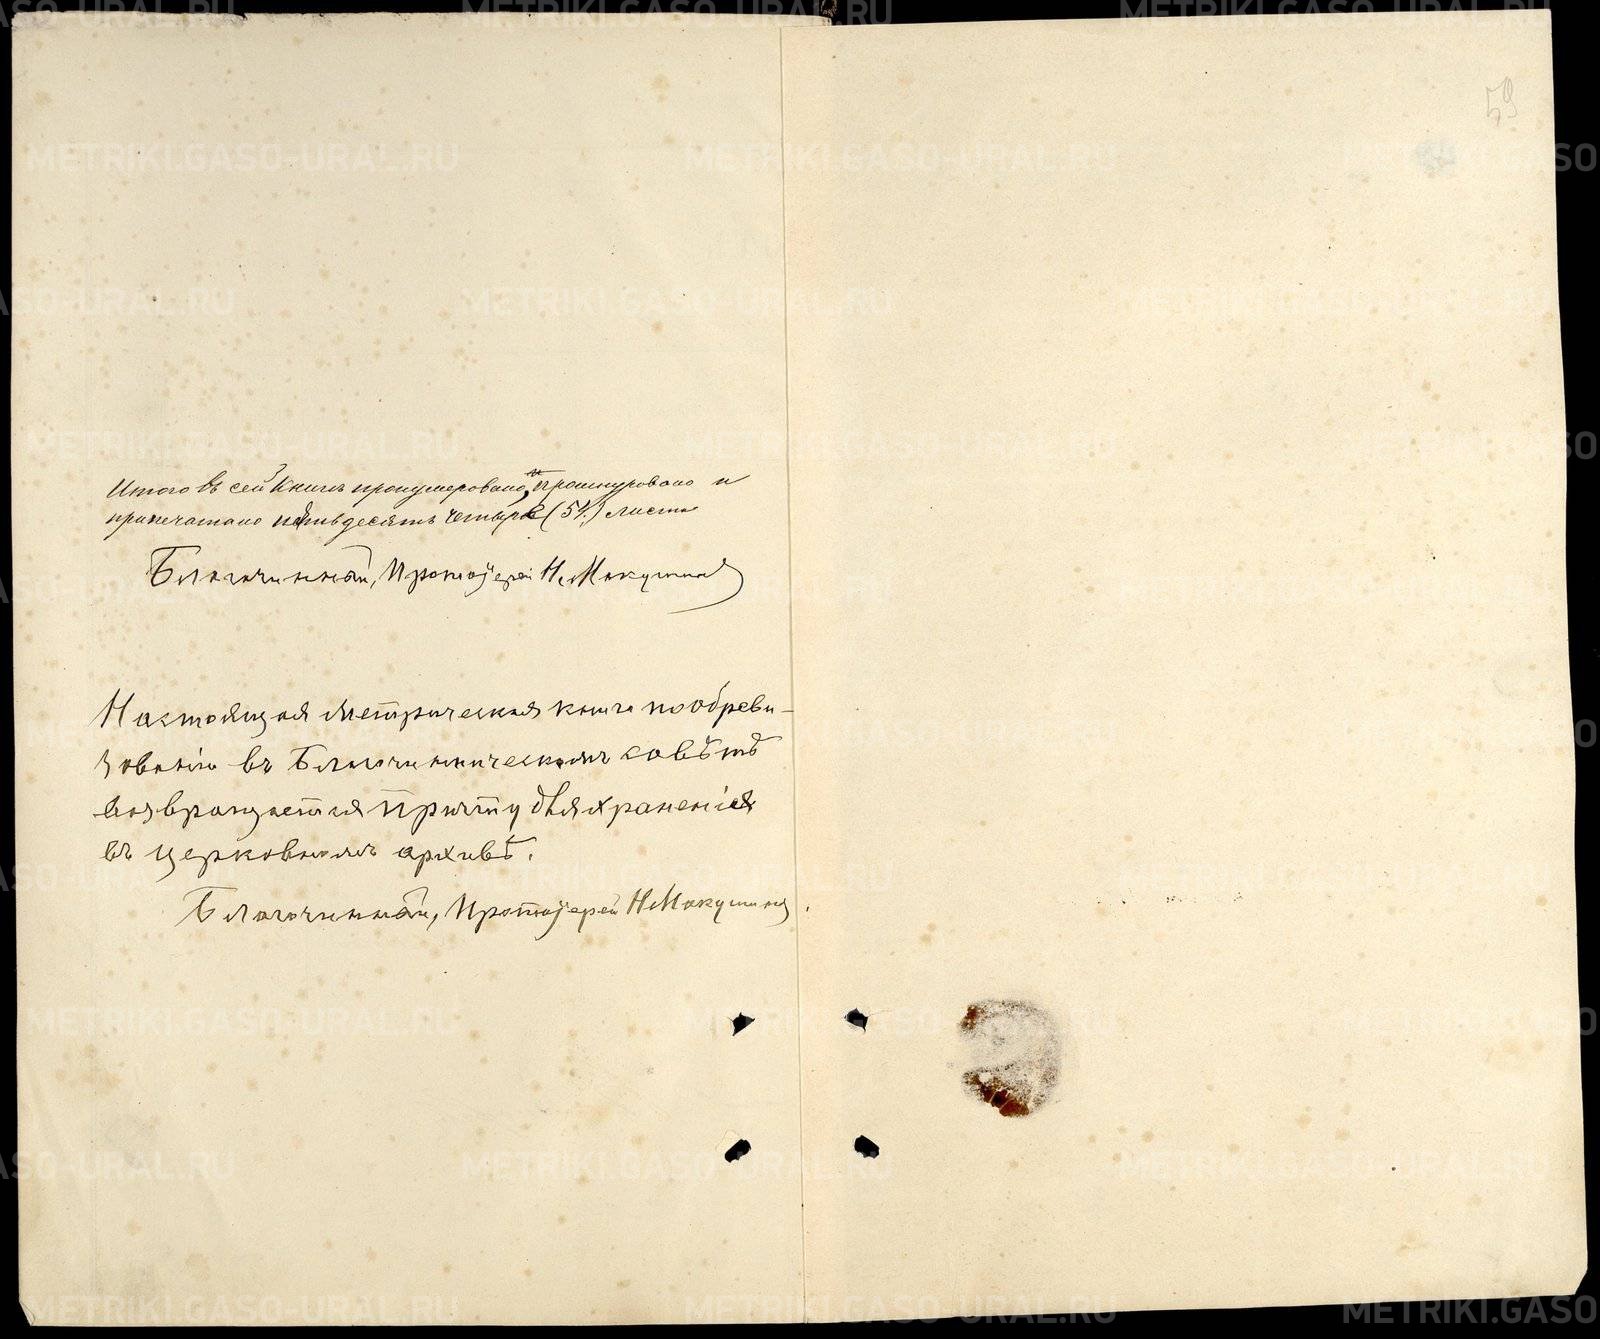 59
Итого въ сей книгѣ пронумеровано, и прошнуровано и
припечатано пятьдесятъ четыре (54) листа
Благочинный, Протоіерей Н. Макушинъ
Настоящая метрическая книга по обреви-
зованіи въ Благочинническомъ совѣтѣ
возвращается Причту для храненія
въ церковномъ архивѣ.
Благочинный, Протоіерей Н. Макушинъ.
METRIKI.GASO-URAL.RU